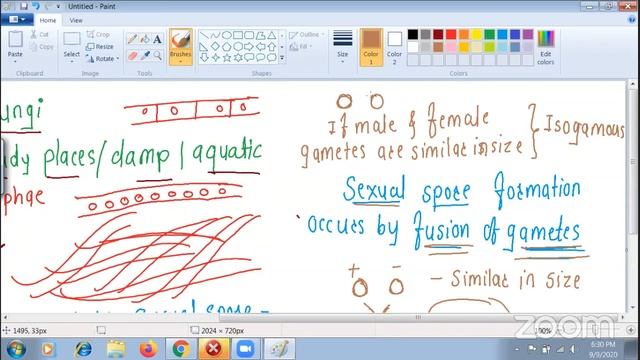 Untitled - Paint
Home
View
Paste
Cut
Copy
Clipboard
Select
Crop
Resize
Rotate
Image
Tools
Brushes
Shapes
Outline
Fill
Size
Color 1
Color 2
Edit colors
Colors
ungi
places/damp/aquatic
phae
If male & female
gametes are similar in size
Isogamous
Sexual spore formation
occurs by fusion of gametes
+ -
- Similar in size
1495, 33px
2024 × 720px
100%
zoom
6:30 PM
9/9/2020